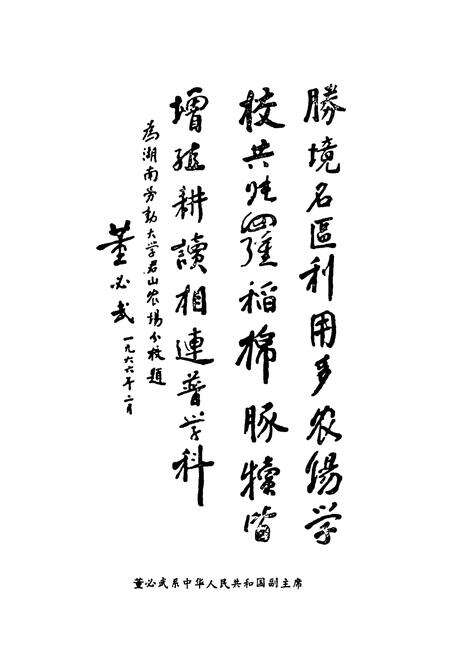 勝境名區利用多农場学
校共羅稻棉豚犢皆
增殖耕讀相連普学科
為湖南劳動大学君山农場分校題
董必武 一九六六年二月
董必武系中华人民共和国副主席